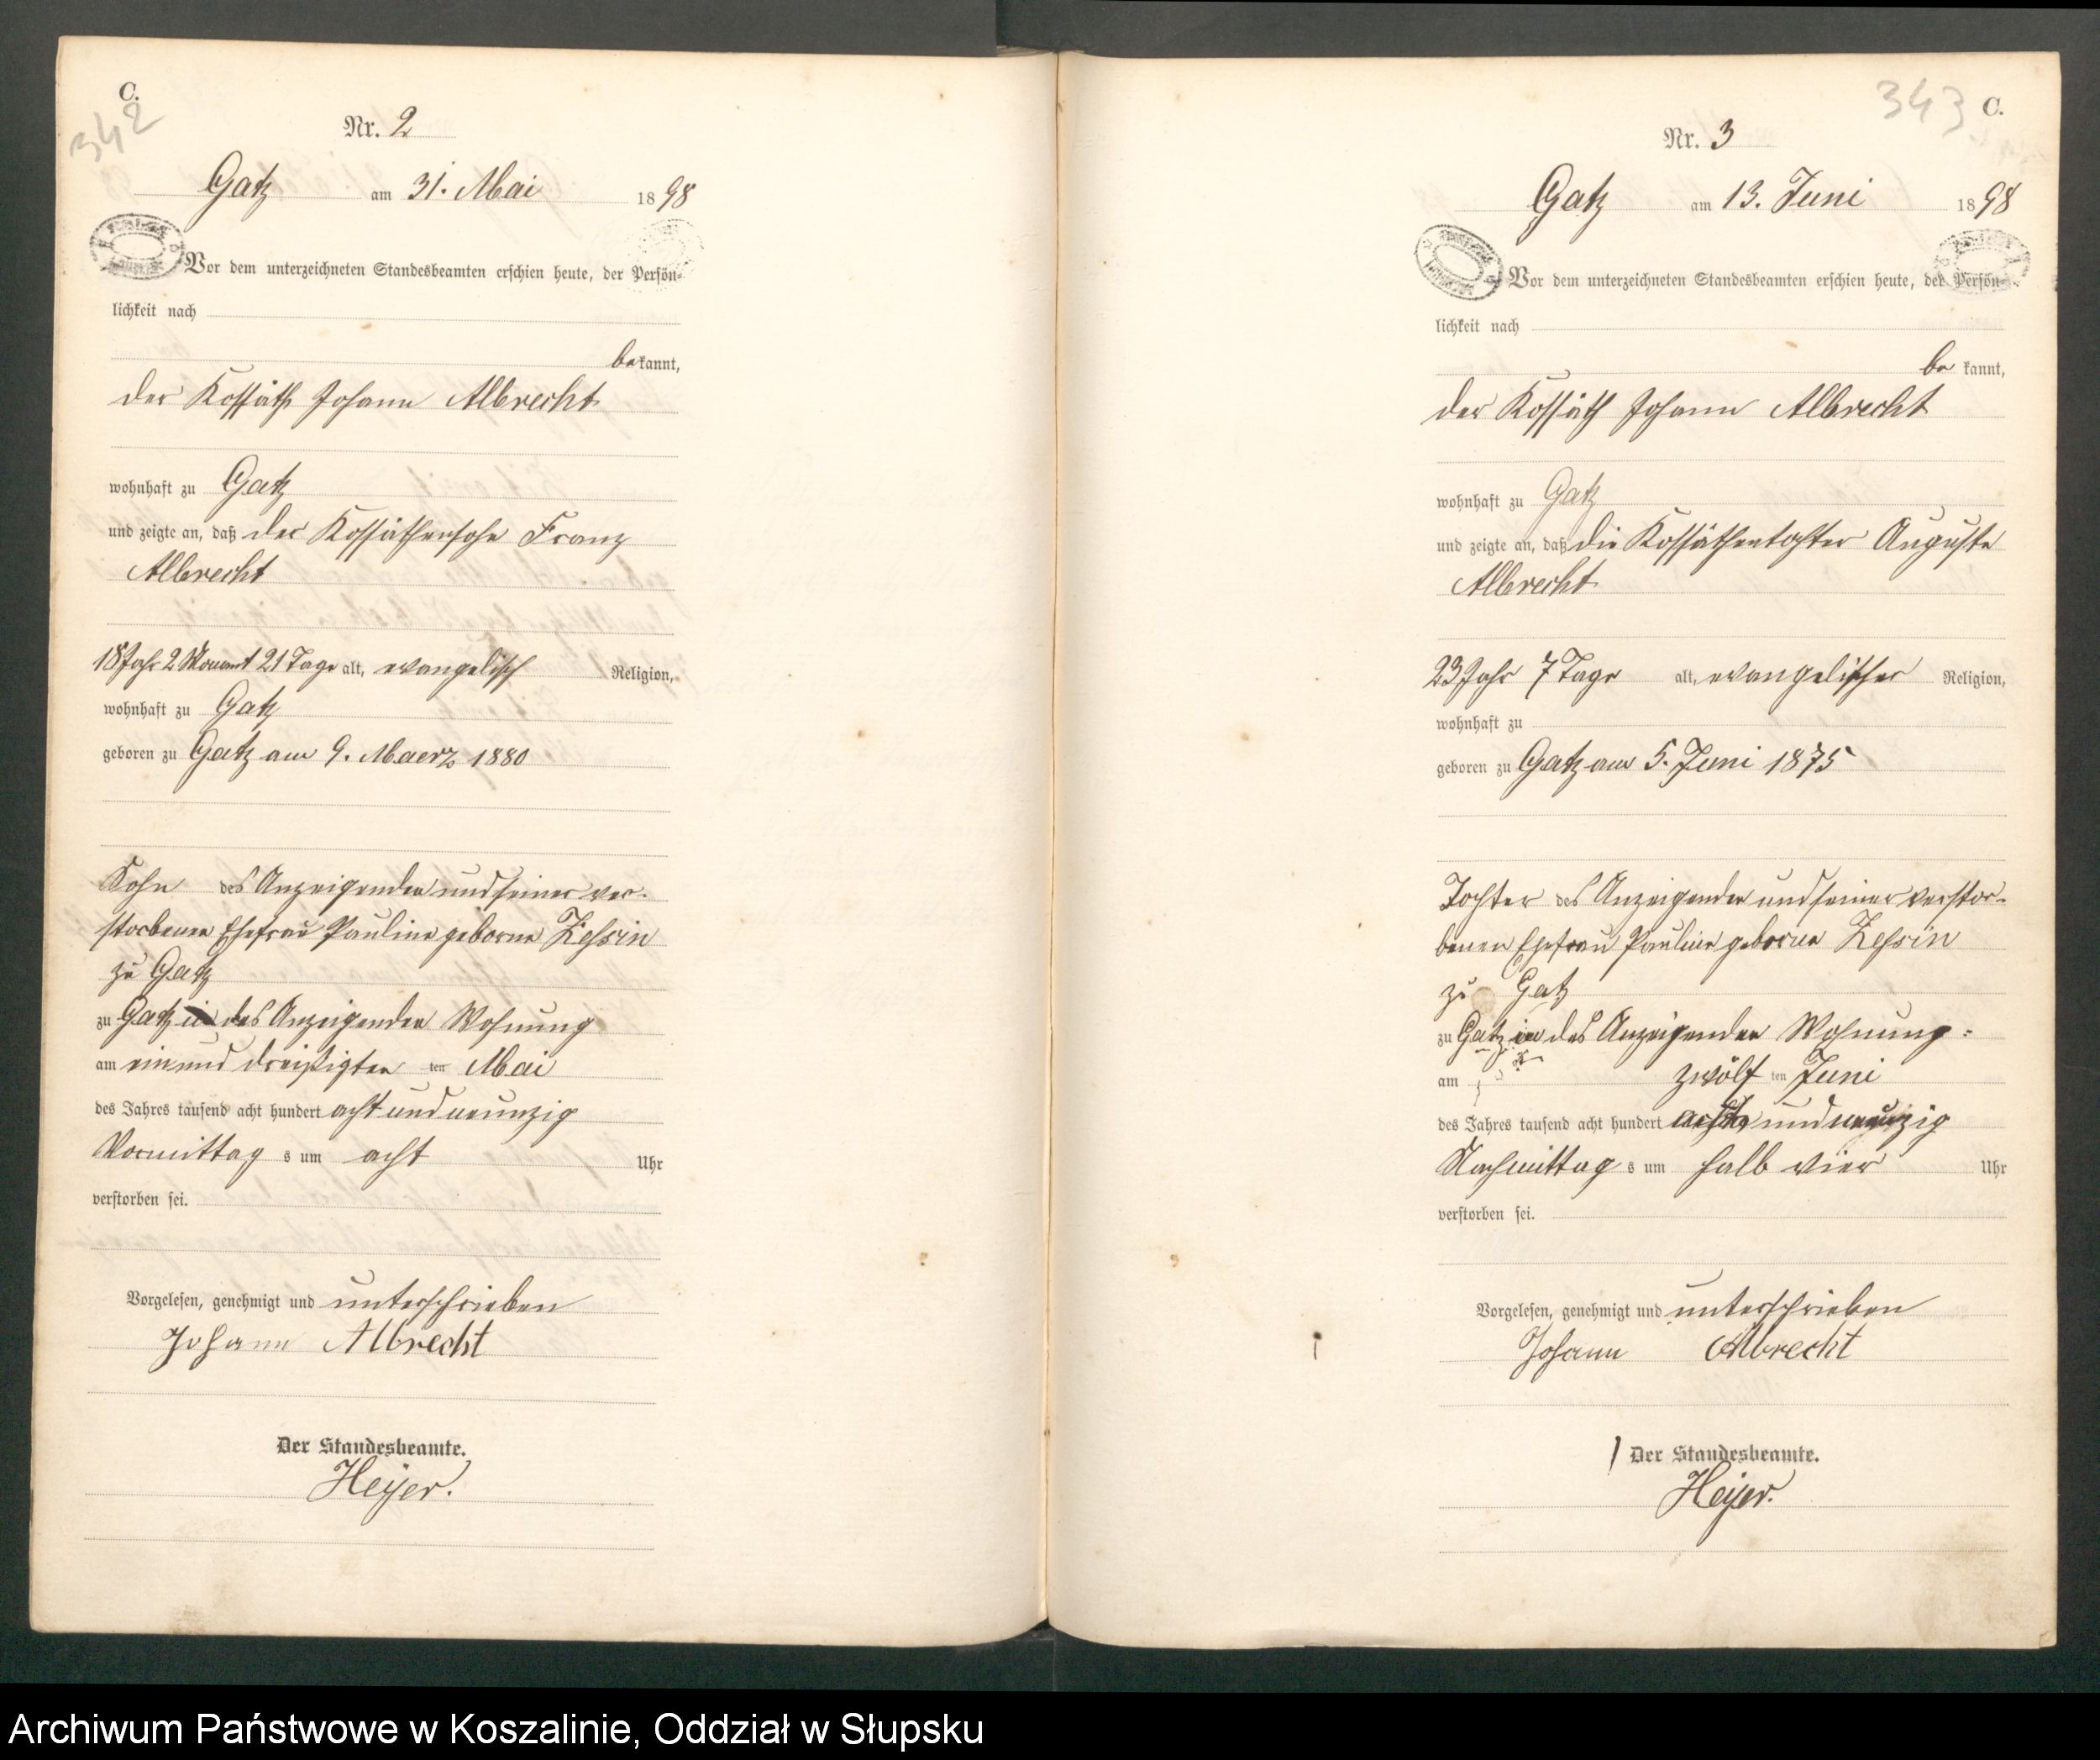 C.
342
Nr. 2
Gatz am 31. Mai 1898
Vor dem unterzeichneten Standesbeamten erschien heute, der Persön-
lichkeit nach
bekannt,
der Kossäth Johann Albrecht
wohnhaft zu Gatz
und zeigte an, daß der Kossäthensohn Franz
Albrecht
18 Jahr 2 Monat 21 Tage alt, evangelisch Religion,
wohnhaft zu Gatz
geboren zu Gatz am 9. Maerz 1880
Sohn des Anzeigenden und seiner ver-
storbenen Ehefrau Pauline geborne Zessin
zu Gatz
zu Gatz in des Anzeigenden Wohnung
am ein und dreißigten ten Mai
des Jahres tausend acht hundert acht und neunzig
Vormittag s um acht Uhr
verstorben sei.
Vorgelesen, genehmigt und unterschrieben
Johann Albrecht
Der Standesbeamte.
Heyer.
343
C.
Nr. 3
Gatz am 13. Juni 1898
Vor dem unterzeichneten Standesbeamten erschien heute, der Persön-
lichkeit nach
be kannt,
der Kossäth Johann Albrecht
wohnhaft zu Gatz
und zeigte an, daß die Kossäthentochter Auguste
Albrecht
23 Jahr 7 Tage alt, evangelischer Religion,
wohnhaft zu
geboren zu Gatz am 5. Juni 1875
Tochter des Anzeigenden und seiner verstor-
benen Ehefrau Pauline geborne Zessin
zu Gatz
zu Gatz in des Anzeigenden Wohnung
am zwölf ten Juni
des Jahres tausend acht hundert acht und neunzig
Nachmittag s um halb vier Uhr
verstorben sei.
Vorgelesen, genehmigt und unterschrieben
Johann Albrecht
Der Standesbeamte.
Heyer.
Archiwum Państwowe w Koszalinie, Oddział w Słupsku